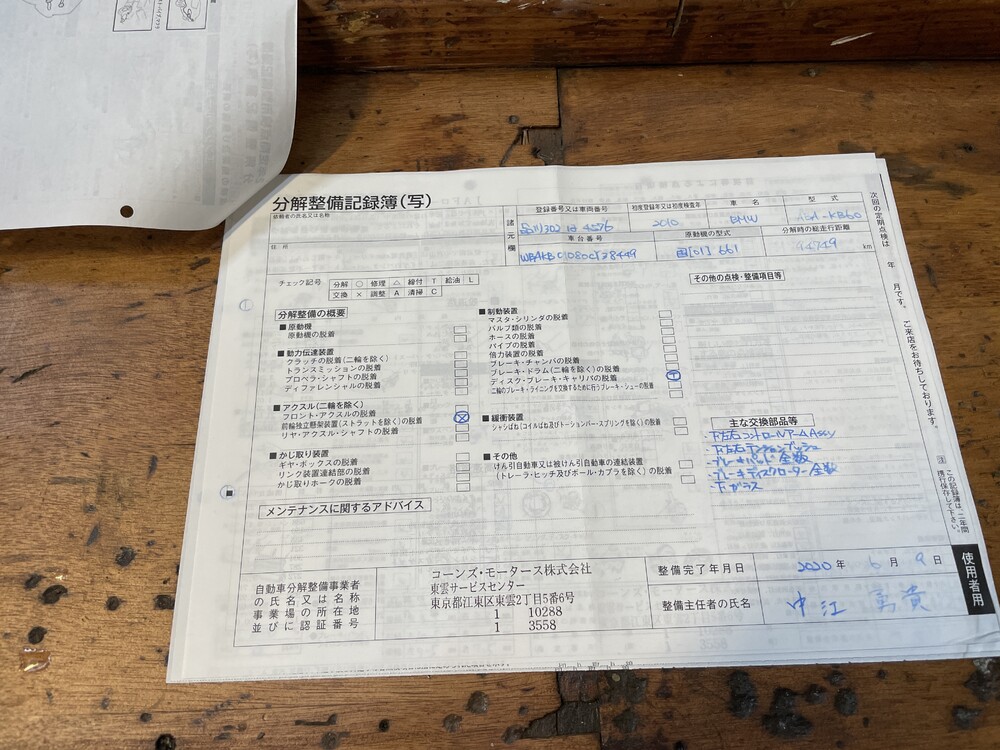 分解整備記録簿(写)
依頼者の氏名又は名称
住所
諸元欄
登録番号又は車両番号
初度登録年又は初度検査年
車名
型式
品川302
2010
BMW
車台番号
原動機の型式
分解時の総走行距離
国[01] 661
km
チェック記号
分解 ○ 修理 △ 締付 T 給油 L
交換 × 調整 A 清掃 C
その他の点検・整備項目等
分解整備の概要
■原動機
原動機の脱着
■動力伝達装置
クラッチの脱着(二輪を除く)
トランスミッションの脱着
プロペラ・シャフトの脱着
ディファレンシャルの脱着
■アクスル(二輪を除く)
フロント・アクスルの脱着
前輪独立懸架装置(ストラットを除く)の脱着
リヤ・アクスル・シャフトの脱着
■かじ取り装置
ギヤ・ボックスの脱着
リンク装置連結部の脱着
かじ取りホークの脱着
■制動装置
マスタ・シリンダの脱着
バルブ類の脱着
ホースの脱着
パイプの脱着
倍力装置の脱着
ブレーキ・チャンバの脱着
ブレーキ・ドラム(二輪を除く)の脱着
ディスク・ブレーキ・キャリパの脱着
二輪のブレーキ・ライニングを交換するために行うブレーキ・シューの脱着
■緩衝装置
シャシばね(コイルばね及びトーションバー・スプリングを除く)の脱着
■その他
けん引自動車又は被けん引自動車の連結装置
(トレーラ・ヒッチ及びボール・カプラを除く)の脱着
主な交換部品等
・F左右コントロールアームAssy
・ブレーキパッド 全数
・ブレーキディスクローター 全数
メンテナンスに関するアドバイス
自動車分解整備事業者
の氏名又は名称
事業場の所在地
並びに認証番号
コーンズ・モータース株式会社
東雲サービスセンター
東京都江東区東雲2丁目5番6号
1 10288
1 3558
整備完了年月日
2020 年 6 月 9 日
整備主任者の氏名
中江
次回の定期点検は 年 月です。ご来店をお待ちしております。
注 この記録簿は、二年間
携行保存して下さい。
使用者用